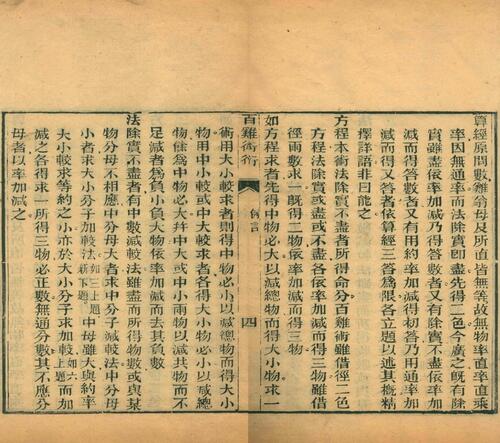 算經原問數雞翁母及所直皆無等故無物率直率直乘
率因無通率而法除實卽盡先得二色今廣之旣有除
實雖盡依率加減乃得答數者又有除實不盡依率加
減而得答數者又有用約率加減得初答乃用通率加
減而得又答者依算經三答爲限各立題以述其概精
擇詳語非曰能之
方程本術法除實不盡者所得命分百雞術雖借徑二色
方程法除實或盡或不盡各依率加減而得二物雖借
徑兩數求一旣得二物依率加減而得三物
如方程求者先得中物必大以減總物而得大小物求一
百雞術衍
例言
四
術用大小較求者則得中物必小以減總物而得大小
物用中小較或中大較求者各得大小物必小以減總
物餘爲中物必大幷中大或中小兩物以減共物而不
足減者爲負小負大物依率加減而去其負數
法除實不盡者有中數減較法雖盡而所得物數或與某
物分母不相應中分母大者求中分子減較法中分母
小者求大小分子加較法如三上題新下題中母雖大與約率
大小較求等約之小亦於大小分子求加較如六上題而加
減之各得求一所得三物必正數無通分數其不應分
母者以率加減之